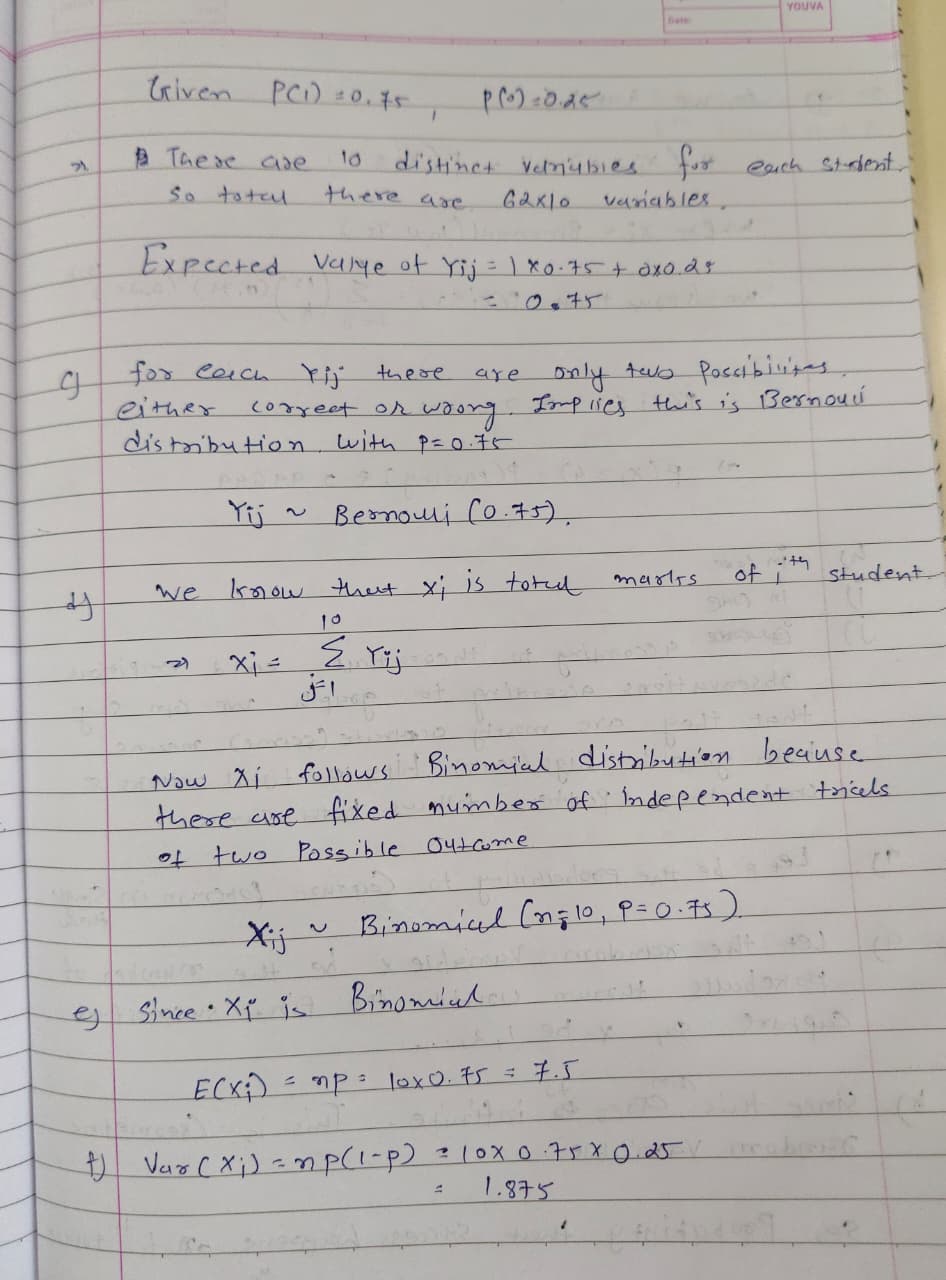 YOUVA
Date:
Given P(1) = 0.75, P(0) = 0.25
⇒ There are 10 distinct variables for each student
so total there are 62x10 variables.
Expected value of Yij = 1x0.75 + 0x0.25
= 0.75
c) for each Yij there are only two Possibilites.
either correct or wrong. Implies this is Bernouli
distribution. with P=0.75
Yij ~ Bernoulli (0.75).
d) we know that Xi is total marks of ith student
⇒ Xi = 10 Σ j=1 Yij
Now Xi follows Binomial distribution because
there are fixed number of independent trials
of two Possible Outcome
Xij ~ Binomial (n=10, P=0.75).
e) Since Xi is Binomial
E(Xi) = np = 10x0.75 = 7.5
f) Var(Xi) = np(1-p) = 10x0.75x0.25
= 1.875